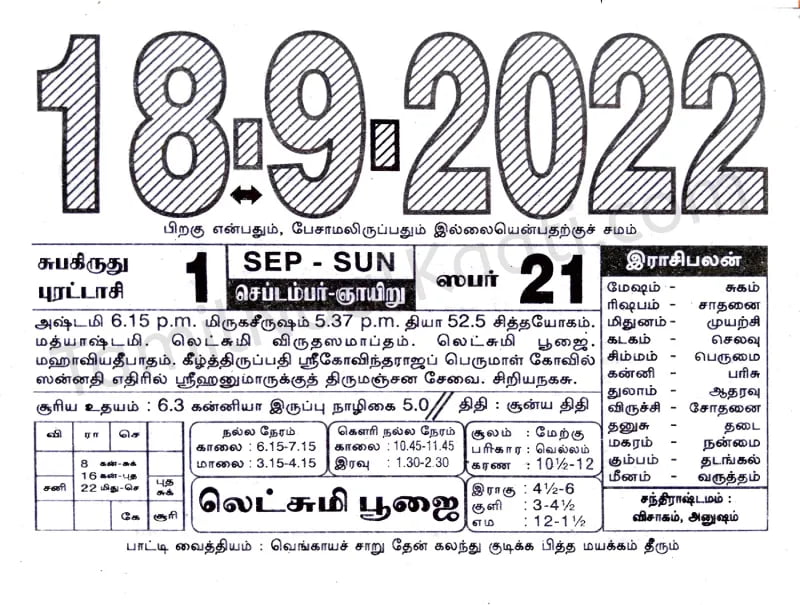 18-9-2022
பிறகு என்பதும், பேசாமலிருப்பதும் இல்லையென்பதற்குச் சமம்
சுபகிருது
புரட்டாசி
1
SEP - SUN
செப்டம்பர்-ஞாயிறு
ஸபர் 21
அஷ்டமி 6.15 p.m. மிருகசீருஷம் 5.37 p.m. தியா 52.5 சித்தயோகம்.
மத்யாஷ்டமி. லெட்சுமி விருதஸமாப்தம். லெட்சுமி பூஜை.
மஹாவியதீபாதம். கீழ்த்திருப்பதி ஸ்ரீகோவிந்தராஜப் பெருமாள் கோவில்
ஸன்னதி எதிரில் ஸ்ரீஹனுமாருக்குத் திருமஞ்சன சேவை. சிறியநகசு.
சூரிய உதயம் : 6.3 கன்னியா இருப்பு நாழிகை 5.0 // திதி : சூன்ய திதி
இராசிபலன்
மேஷம் - சுகம்
ரிஷபம் - சாதனை
மிதுனம் - முயற்சி
கடகம் - செலவு
சிம்மம் - பெருமை
கன்னி - பரிசு
துலாம் - ஆதரவு
விருச்சி - சோதனை
தனுசு - தடை
மகரம் - நன்மை
கும்பம் - தடங்கல்
மீனம் - வருத்தம்
சந்திராஷ்டமம் :
விசாகம், அனுஷம்
வி ரா செ
8 கன்-சுக்
16 கன்-புத
சனி 22 மிது-செ புத
சுக்
கே சூரி
நல்ல நேரம்
காலை : 6.15-7.15
மாலை : 3.15-4.15
கௌரி நல்ல நேரம்
காலை : 10.45-11.45
இரவு : 1.30-2.30
சூலம் : மேற்கு
பரிகார : வெல்லம்
கரண : 10½-12
லெட்சுமி பூஜை
இராகு : 4½-6
குளி : 3-4½
எம : 12-1½
பாட்டி வைத்தியம் : வெங்காயச் சாறு தேன் கலந்து குடிக்க பித்த மயக்கம் தீரும்